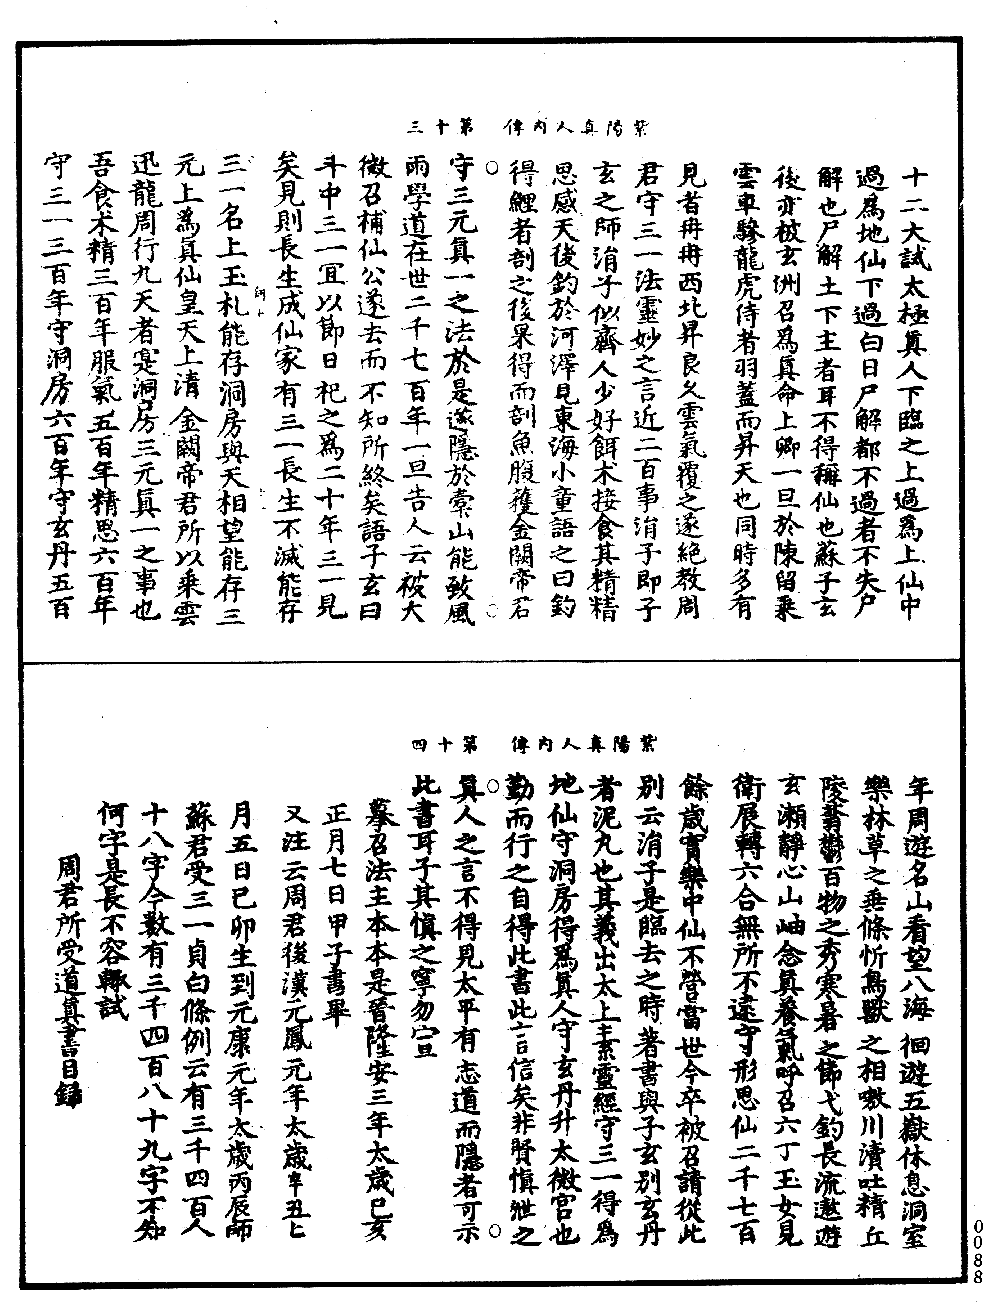 紫陽真人內傳　第十三
十二大試太極真人下臨之上過為上仙中
過為地仙下過白日尸解都不過者不失尸
解也尸解土下主者耳不得稱仙也蘇子玄
後亦被玄洲召為真命上卿一旦於陳留乘
雲車驂龍虎侍者羽蓋而昇天也同時多有
見者冉冉西北昇良久雲氣覆之遂絕教周
君守三一法靈妙之言近二百事涓子即子
玄之師涓子似齊人少好餌术接食其精精
思感天後釣於河澤見東海小童語之曰釣
得鯉者剖之後果得而剖魚腹獲金闕帝君
守三元真一之法於是遂隱於橐山能致風
雨學道在世二千七百年一旦告人云被大
微召補仙公遂去而不知所終矣語子玄曰
斗中三一宜以節日祀之為二十年三一見
矣見則長生成仙家有三一長生不滅能存
三一名上玉札能存洞房與天相望能存三
元上為真仙皇天上清金闕帝君所以乘雲
迅龍周行九天者寔洞房三元真一之事也
吾食术精三百年服氣五百年精思六百年
守三一三百年守洞房六百年守玄丹五百
紫陽真人內傳　第十四
年周遊名山看望八海徊遊五嶽休息洞室
樂林草之垂條忻鳥獸之相嗷川瀆吐精丘
陵蓊鬱百物之秀寒暑之節弋釣長流遨遊
玄瀨靜心山岫念真養氣呼召六丁玉女見
衛展轉六合無所不遠守形思仙二千七百
餘歲實樂中仙不營當世今卒被召請從此
別云涓子是臨去之時著書與子玄別玄丹
者泥丸也其義出太上素靈經守三一得為
地仙守洞房得為真人守玄丹升太微宮也
勤而行之自得此書此言信矣非賢慎泄之
真人之言不得見太平有志道而隱者可示
此書耳子其慎之寧勿宣
摹召法主本本是晉隆安三年太歲己亥
正月七日甲子書畢
又注云周君後漢元鳳元年太歲辛丑七
月五日己卯生到元康元年太歲丙辰師
蘇君受三一貞白條例云有三千四百八
十八字今數有三千四百八十九字不知
何字是長不容輒試
周君所受道真書目録
0088